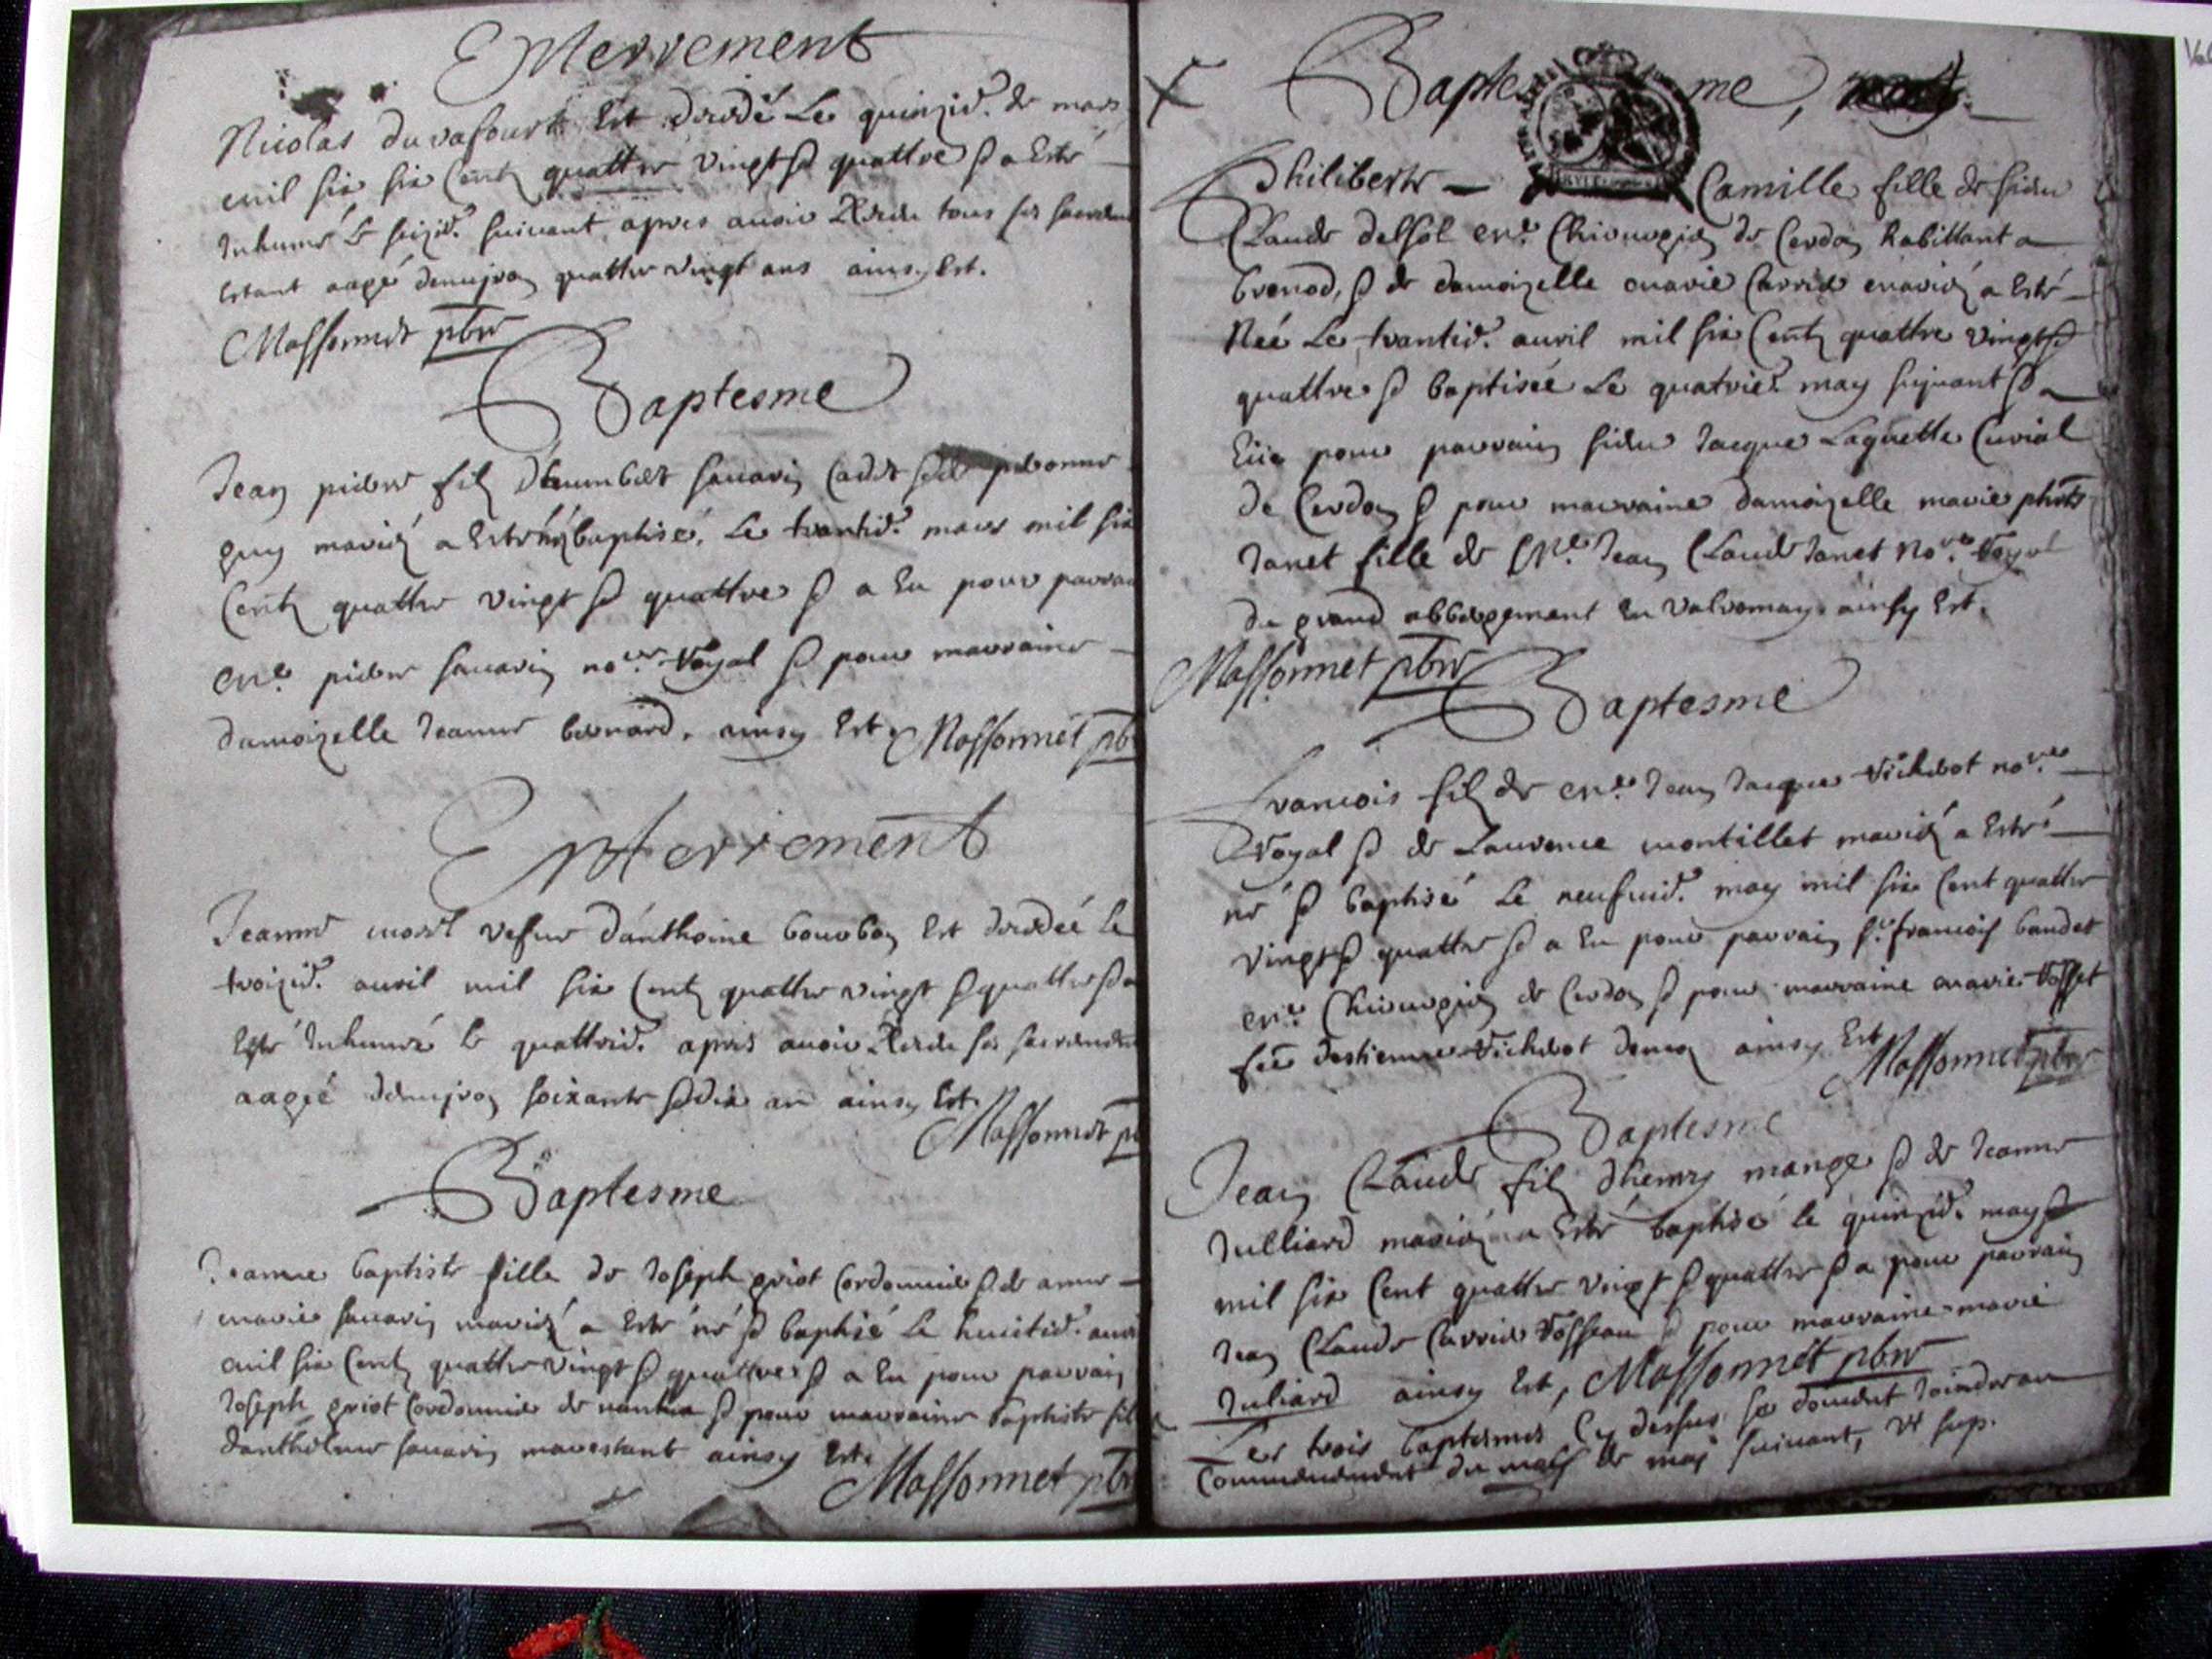 Enterrement
Nicolas du vafourt Est decedé Le quinzie. de mars
mil six six Cent quattre vingt & quattre & a Esté
Inhumé le seizie. suivant apres avoir Receu tous ses sacrem
Estant aagé denujron quattre vingt ans ainsy Est.
Massonnet pbre
Baptesme
Jean pierre fils dhumbert savarin Cadet & de pieronne
guy mariés a Esté baptisé, Le trantie. mars mil six
Cent quattre vingt & quattre & a Eu pour parrain
me. pierre savarin nore. Royal & pour marraine
damoizelle Jeanne bernard, ainsy Est Massonnet pbr
Enterrement
Jeanne morel vefue danthoine bourbon Est decedée le
troizie. auril mil six Cent quattre vingt & quattre & a
Esté Inhumé le quattrie. apres auoir Receu ses sacrement
aagée denujron soixante & dix an ainsy Est.
Massonnet p
Baptesme
Jeanne baptiste fille de Joseph griot Cordonnier & de anne
marie savarin mariés a Esté né & baptisé Le huictie. auri
mil six Cent quattre vingt & quattre & a Eu pour parrain
Joseph griot Cordonnier de nantua & pour marraine baptiste fil
danthelme savarin ainsy Est.
Massonnet pbr
Baptesme,
Philiberte Camille fille de sieur
Claude delsol me. Chirurgien de Cerdon habittant a
brenod, & de damoizelle marie Carrier mariés a Esté
Née Le trantie. auril mil six Cent quattre vingt &
quattre & baptisée Le quatrie. may sujuant & a
Eüe pour parrain sieur Jacque Laguette Curial
de Cerdon & pour marraine damoizelle marie
Janet fille de Me. Jean Claude Janet Nore. Royal
du grand abbergement En valromay. ainsy Est.
Massonnet pbre
Baptesme
francois fils de me. Jean Jacque Richerot nore.
Royal & de Laurence montillet mariés a Esté
né & baptisé Le neufuie. may mil six Cent quattre
vingt & quattre & a Eu pour parrain sr. francois baudet
me. Chirurgien de Cerdon & pour marraine marie Rosset
fẽe destienne Richerot ainsy Est Massonnet pbre
Baptesme
Jean Claude fils dhenry mange & de Jeanne
Julliard mariés a Esté baptisé le quinzie. may
mil six Cent quattre vingt & quattre & a pour parrain
Jean Claude Carrier Rosseau & pour marraine marie
Juliard ainsy Est, Massonnet pbre
Les trois baptesmes Cy dessus se doiuent Joindre au
Commencement du mois de maj suivant, vt sup.